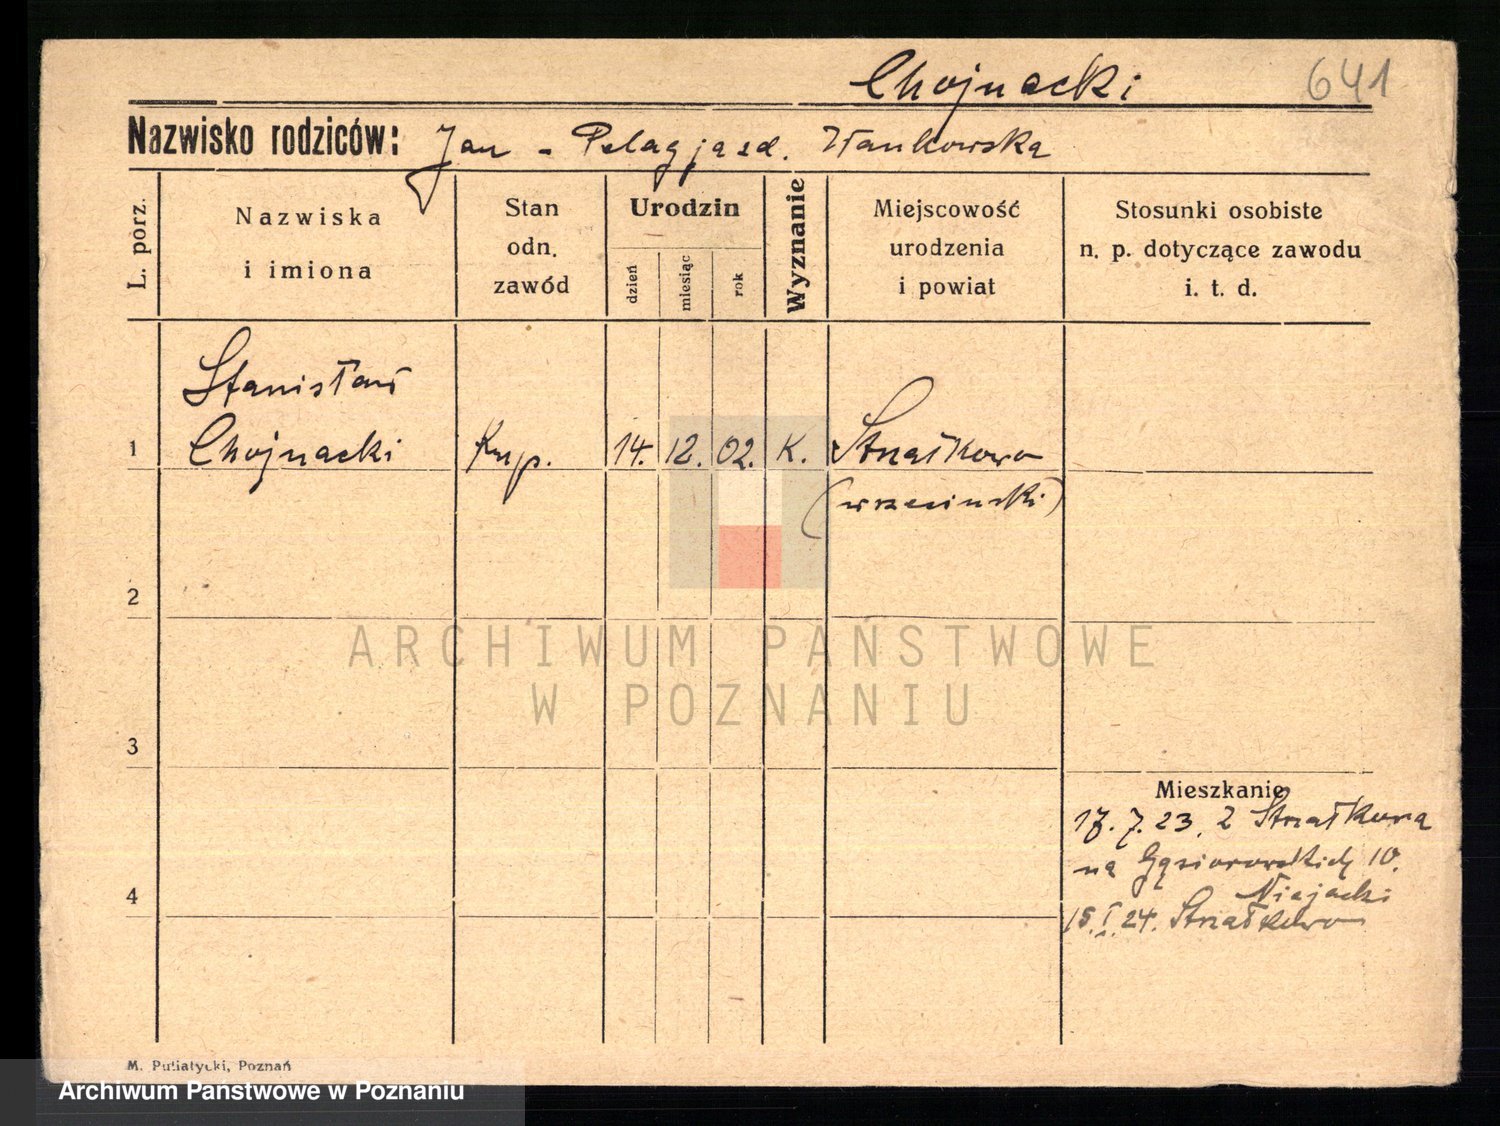 Chojnacki
641
Nazwisko rodziców: Jan - Pelagja zd.
L. porz.
Nazwiska
i imiona
Stan
odn.
zawód
Urodzin
dzień
miesiąc
rok
Wyznanie
Miejscowość
urodzenia
i powiat
Stosunki osobiste
n. p. dotyczące zawodu
i. t. d.
Stanisław
1 Chojnacki Kup. 14. 12. 02. K. Strzałkowo
(wrzesiński)
2
3
4
Mieszkanie
17. 7. 23. z Strzałkowa
na Gąsiorowskich 10.
Niejacki
15. I. 24. Strzałkowo
ARCHIWUM PAŃSTWOWE
W POZNANIU
M. Putiatycki, Poznań
Archiwum Państwowe w Poznaniu